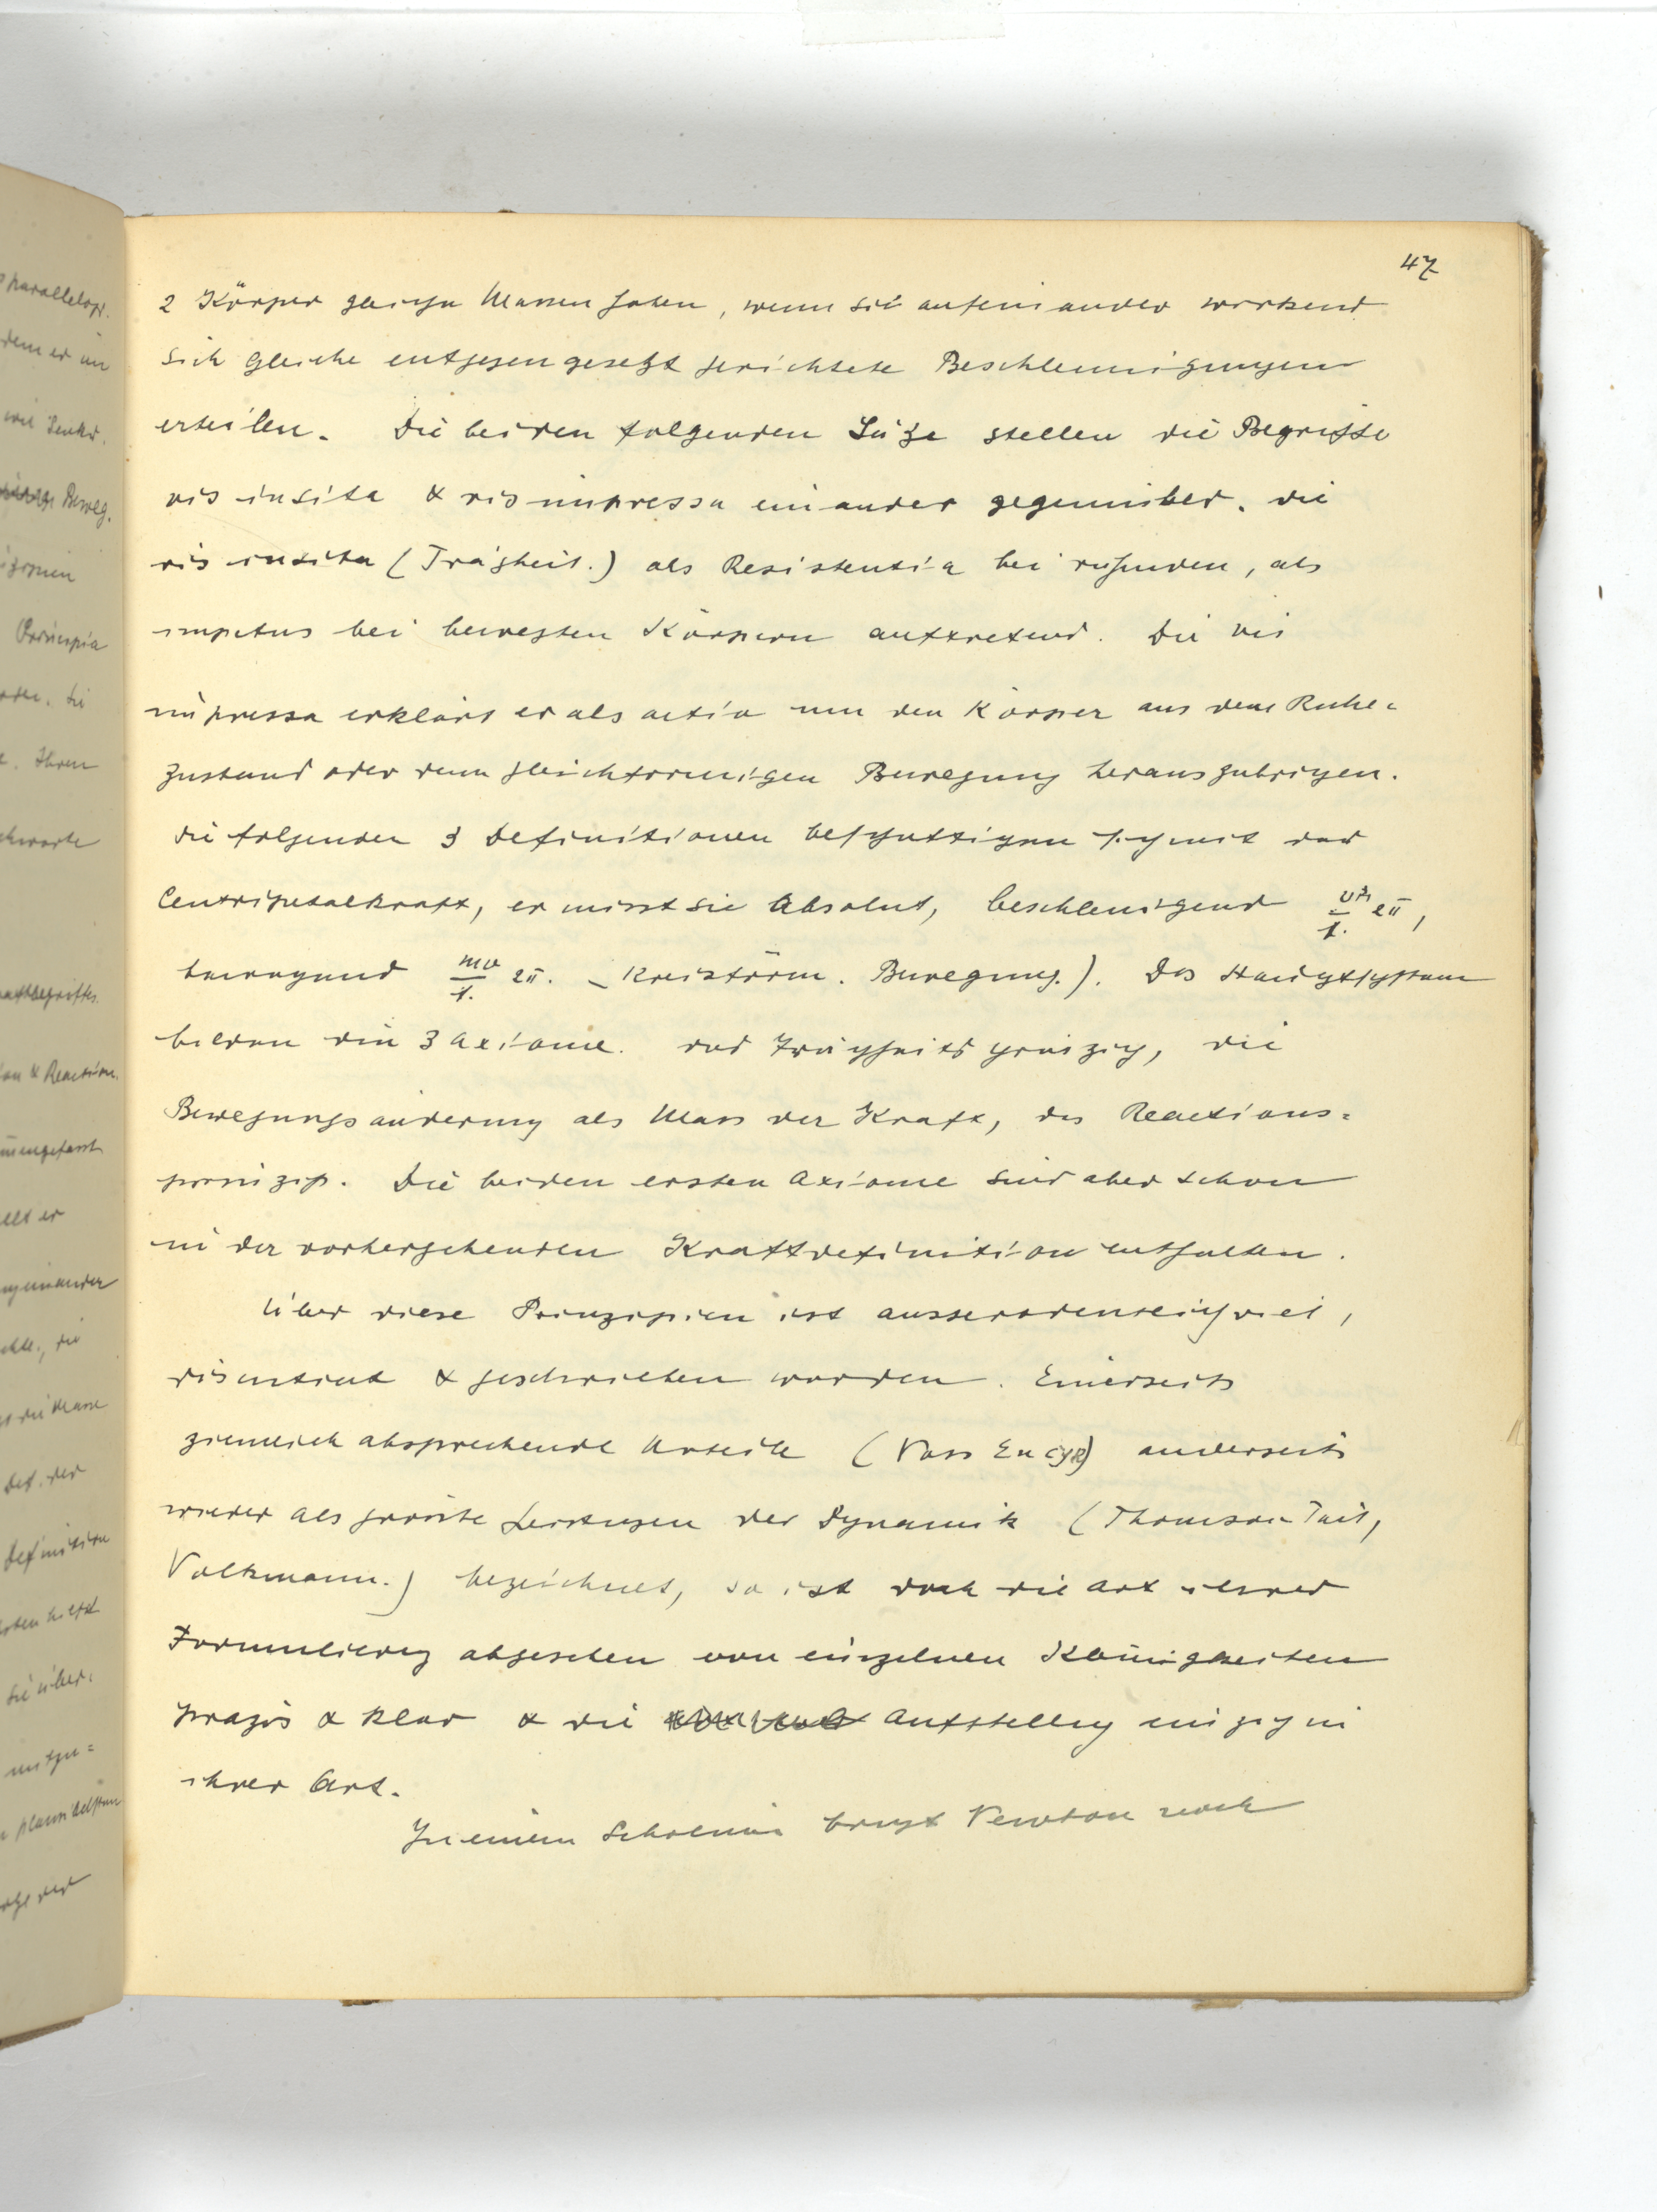 47
2 Körper gleiche Massen haben, wenn sie aufeinander wirkend
sich gleiche entgegengesetzt gerichtete Beschleunigungen
erteilen. Die beiden folgenden Sätze stellen die Begriffe
vis insita & vis impressa einander gegenüber. die
vis insita (Trägheit.) als Resistentia bei ruhenden, als
impetus bei bewegten Körpern auftretend. Die vis
impressa erklärt er als actio um den Körper aus dem Ruhe=
zustand oder dem gleichförmigen Bewegung herauszubringen.
die folgenden 3 Definitionen beschäftigen sich mit der
Centripetalkraft, er misst sie Absolut, beschleunigend 2π,
bewegend mv 2π. Kreisförm. Bewegung.). Das Hauptsystem
bilden die 3 Axiome. das Trägheitsprinzip, die
Bewegungsänderung als Mass der Kraft, das Reactions=
prinzip. Die beiden ersten Axiome sind aber schon
in der vorhergehenden Kraftdefinition enthalten.
Über diese Prinzipien ist ausserordentlich viel,
disputiert & geschrieben worden. Einerseits
ziemlich absprechende Urteile (Voss Encyk) anderseits
wieder als grösste Leistungen der Dynamik (Thomson-Tait,
Volkmann.) bezeichnet, so ist doch die Art ihrer
Formulierung abgesehen von einzelnen Kleinigkeiten
präzis & klar & die Aufstellung einzig in
ihrer Art.
In einem Scholium bringt Newton noch
parallelogr.
dem er in
Beweg.
Principia
Sie
Ihren
& Reaction.
einander
die
Def. der
Definition
Sie über=